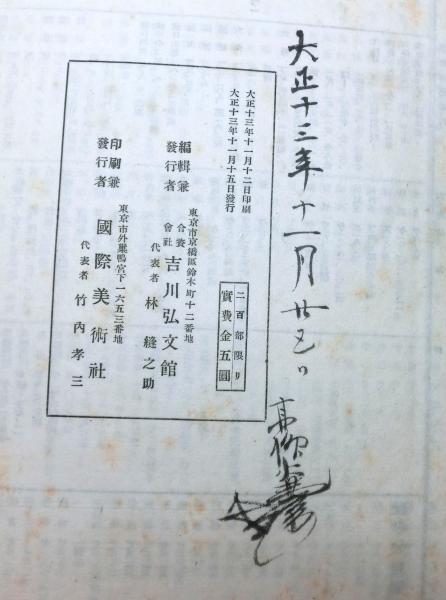 大正十三年十一月廿五日
大正十三年十一月十二日印刷
大正十三年十一月十五日發行
二百部限リ
實費金五圓
編輯兼
發行者
東京市京橋區鈴木町十二番地
合資
會社
吉川弘文館
代表者 林縫之助
印刷兼
發行者
東京市外巢鴨宮下一六五三番地
國際美術社
代表者 竹内孝三